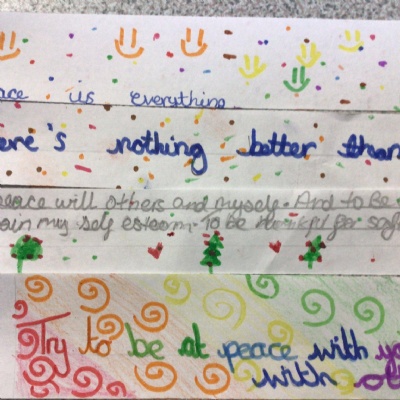 ace is everything
ere's nothing better than
peace will others and myself. And to Be
ain my self esteem. To be for saf
Try to be at peace with yo
with ot